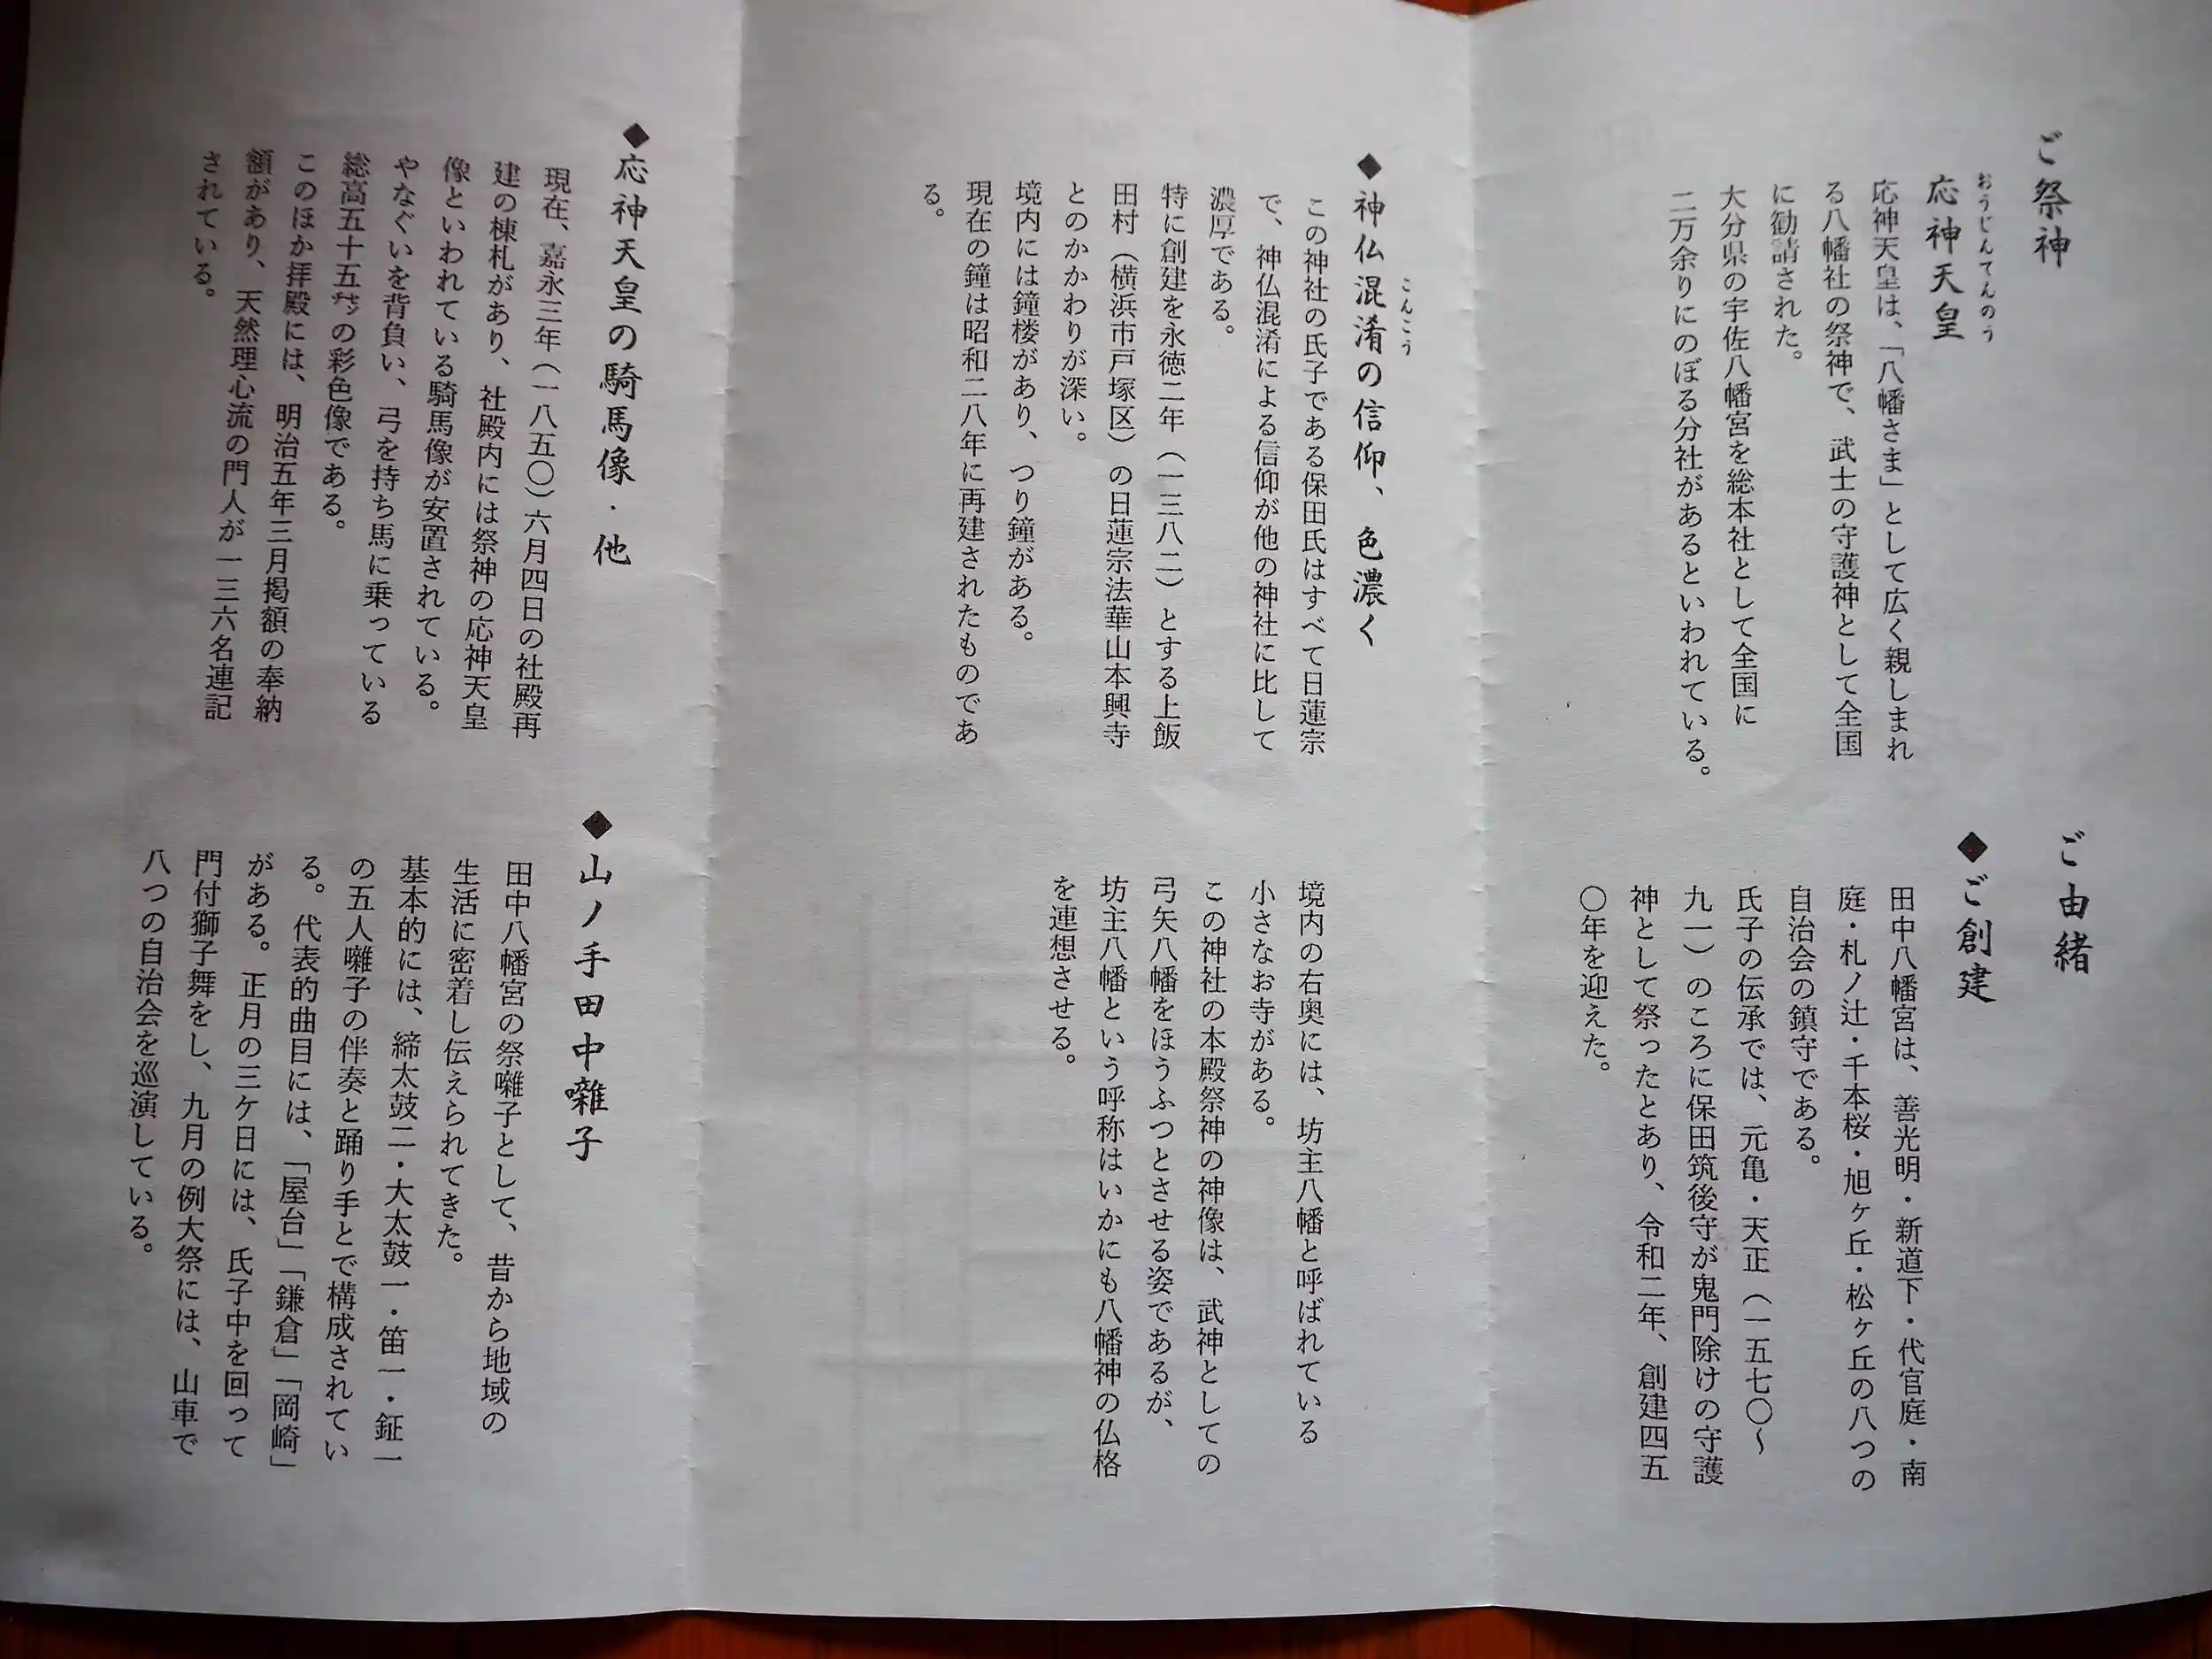 ご祭神
おうじんてんのう
応神天皇
応神天皇は、「八幡さま」として広く親しまれ
る八幡社の祭神で、武士の守護神として全国
に勧請された。
大分県の宇佐八幡宮を総本社として全国に
二万余りにのぼる分社があるといわれている。
ご由緒
◆ご創建
田中八幡宮は、善光明・新道下・代官庭・南
庭・札ノ辻・千本桜・旭ヶ丘・松ヶ丘の八つの
自治会の鎮守である。
氏子の伝承では、元亀・天正（一五七〇〜
九一）のころに保田筑後守が鬼門除けの守護
神として祭ったとあり、令和二年、創建四五
〇年を迎えた。
こんこう
◆神仏混淆の信仰、色濃く
この神社の氏子である保田氏はすべて日蓮宗
で、神仏混淆による信仰が他の神社に比して
濃厚である。
特に創建を永徳二年（一三八二）とする上飯
田村（横浜市戸塚区）の日蓮宗法華山本興寺
とのかかわりが深い。
境内には鐘楼があり、つり鐘がある。
現在の鐘は昭和二八年に再建されたものであ
る。
境内の右奥には、坊主八幡と呼ばれている
小さなお寺がある。
この神社の本殿祭神の神像は、武神としての
弓矢八幡をほうふつとさせる姿であるが、
坊主八幡という呼称はいかにも八幡神の仏格
を連想させる。
◆応神天皇の騎馬像・他
現在、嘉永三年（一八五〇）六月四日の社殿再
建の棟札があり、社殿内には祭神の応神天皇
像といわれている騎馬像が安置されている。
やなぐいを背負い、弓を持ち馬に乗っている
総高五十五㌢の彩色像である。
このほか拝殿には、明治五年三月掲額の奉納
額があり、天然理心流の門人が一三六名連記
されている。
◆山ノ手田中囃子
田中八幡宮の祭囃子として、昔から地域の
生活に密着し伝えられてきた。
基本的には、締太鼓二・大太鼓一・笛一・鉦一
の五人囃子の伴奏と踊り手とで構成されてい
る。代表的曲目には、「屋台」「鎌倉」「岡崎」
がある。正月の三ケ日には、氏子中を回って
門付獅子舞をし、九月の例大祭には、山車で
八つの自治会を巡演している。